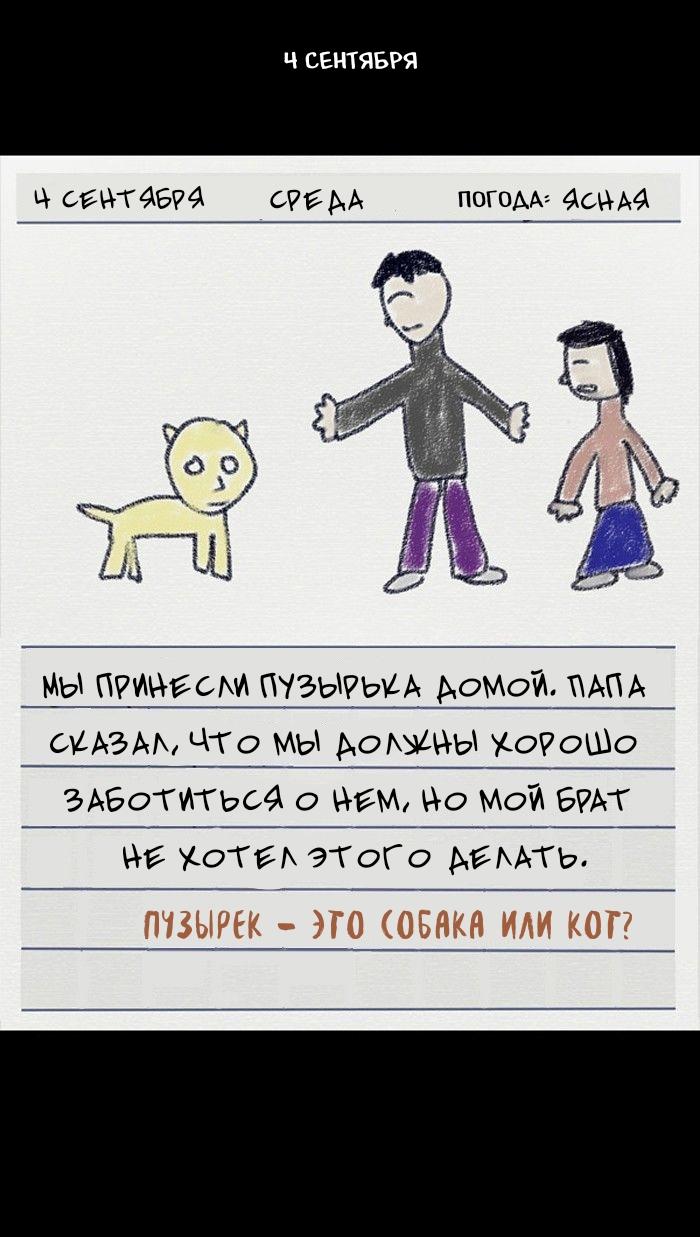 4 СЕНТЯБРЯ
4 СЕНТЯБРЯ СРЕДА ПОГОДА: ЯСНАЯ
МЫ ПРИНЕСЛИ ПУЗЫРЬКА ДОМОЙ. ПАПА
СКАЗАЛ, ЧТО МЫ ДОЛЖНЫ ХОРОШО
ЗАБОТИТЬСЯ О НЕМ, НО МОЙ БРАТ
НЕ ХОТЕЛ ЭТОГО ДЕЛАТЬ.
ПУЗЫРЕК - ЭТО СОБАКА ИЛИ КОТ?